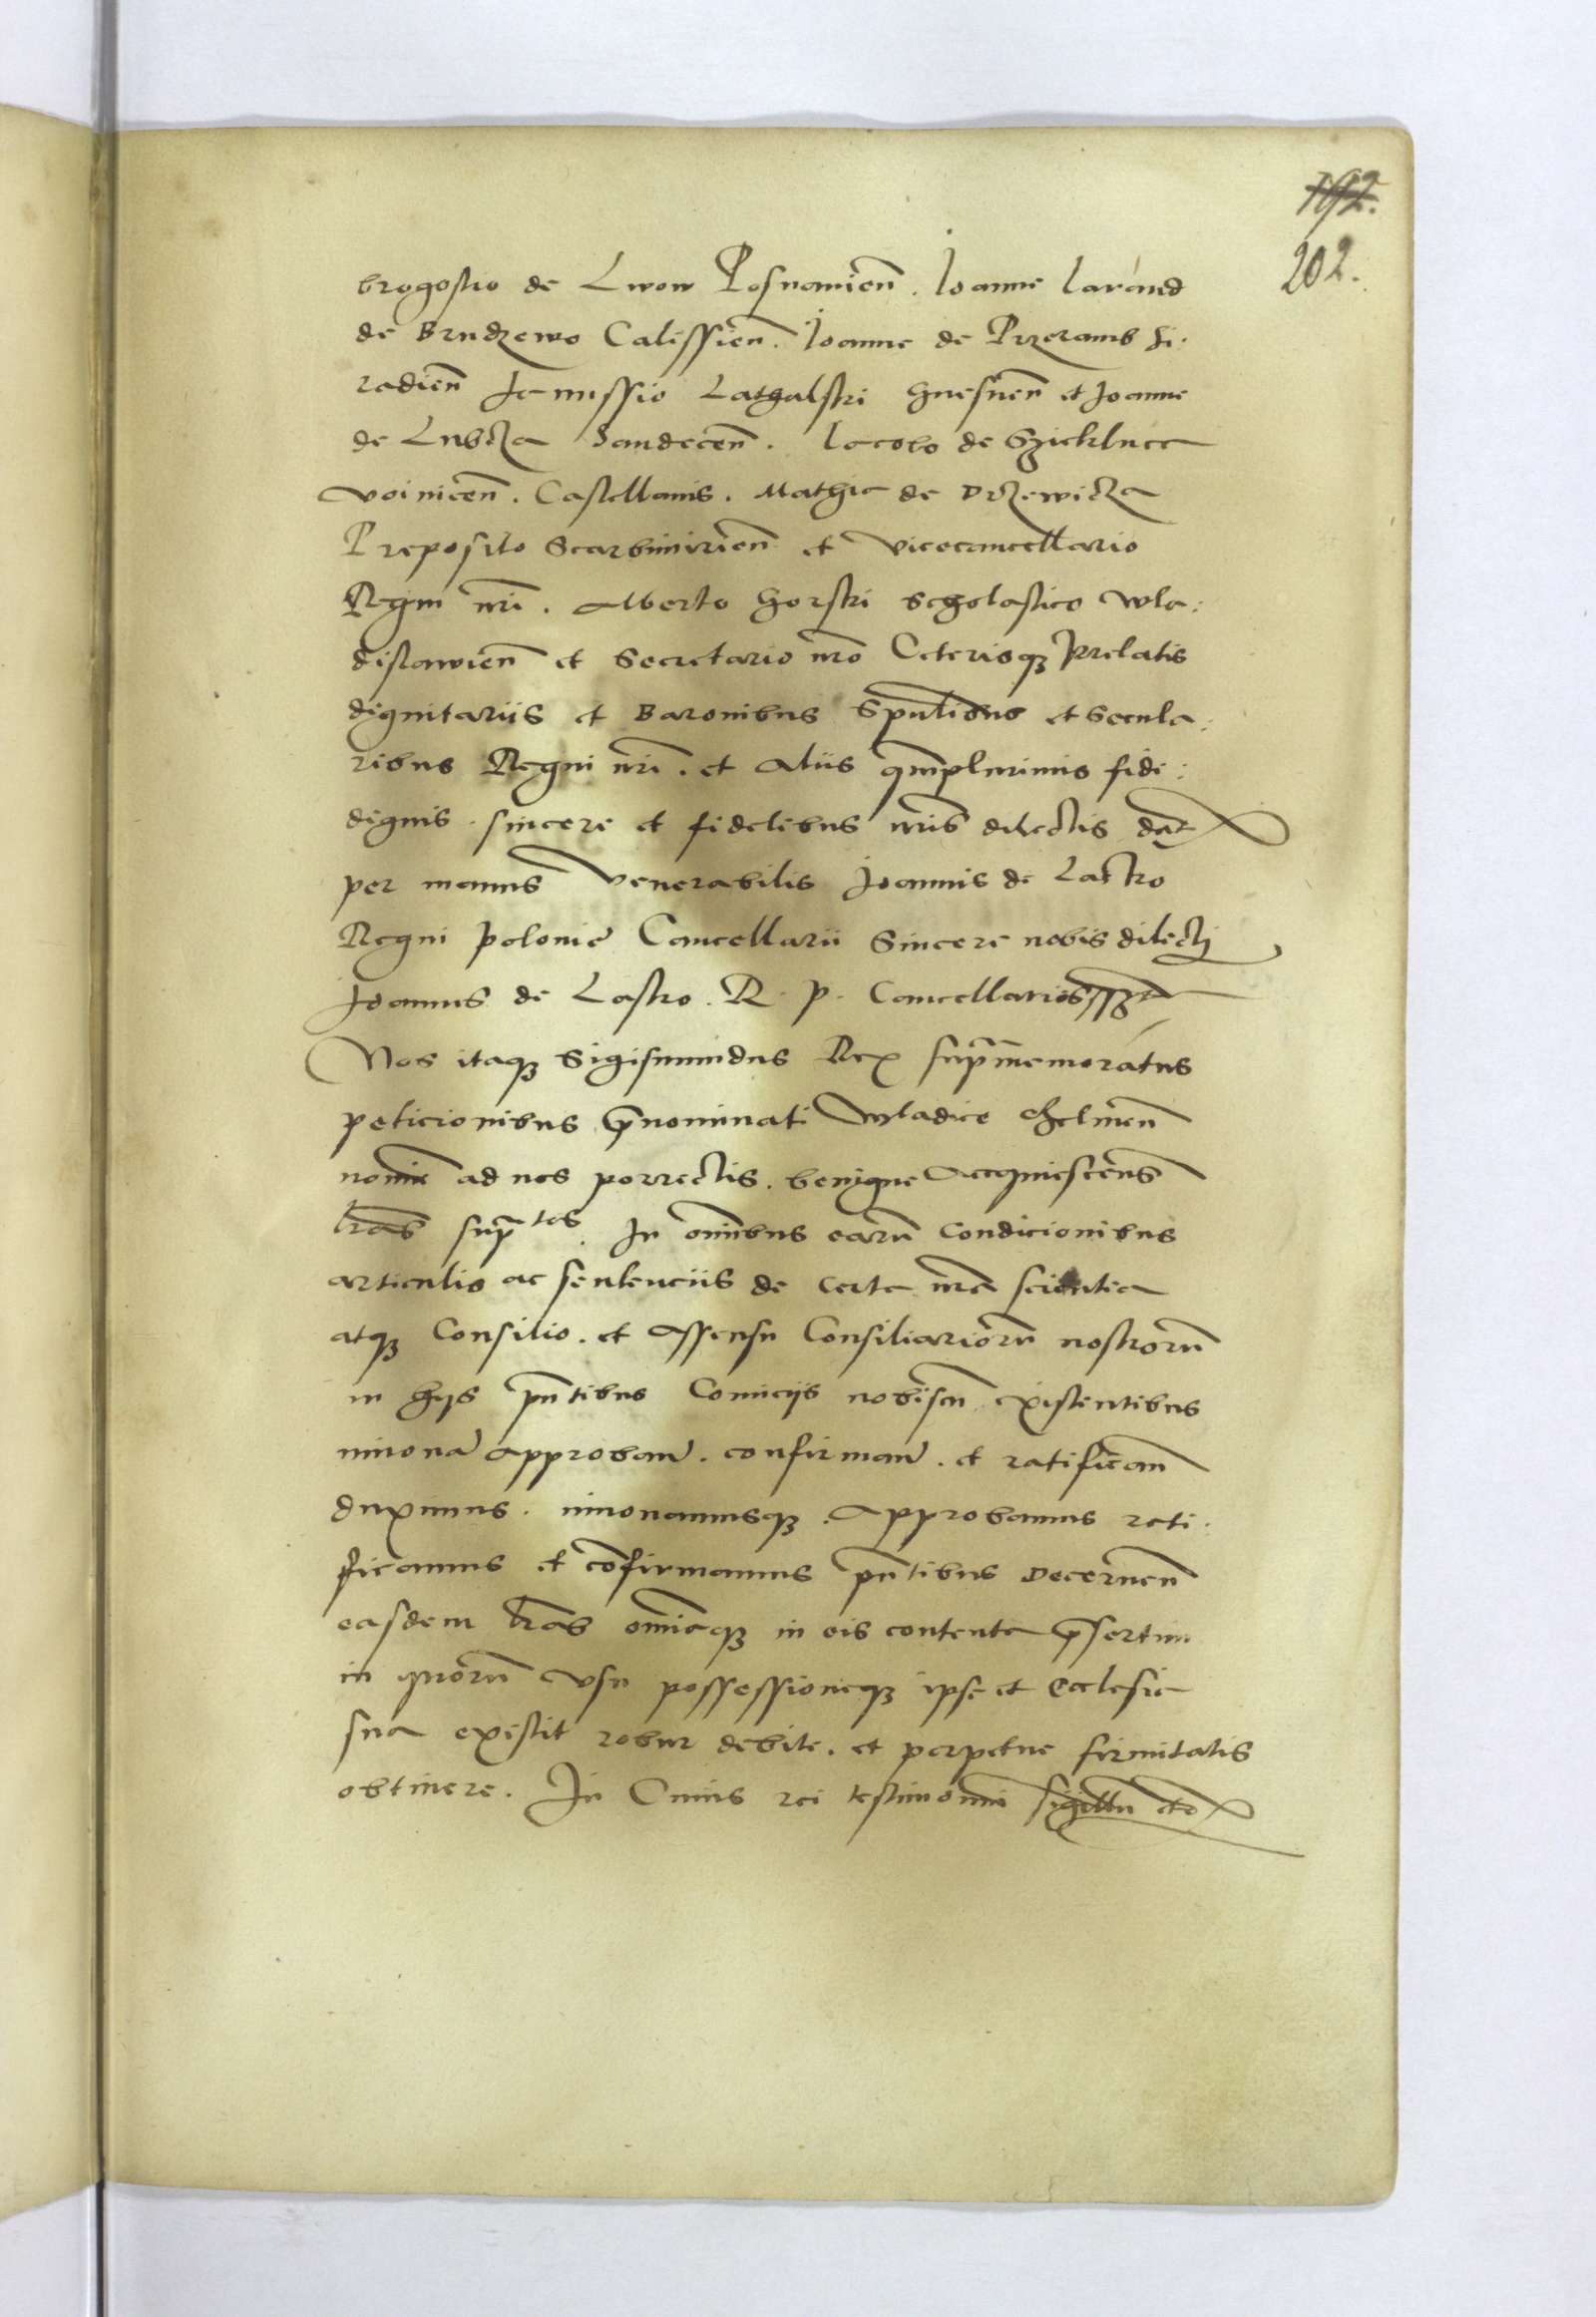 192.
202.
brogostio de Lwow Posnanien̄. Joanne Jarand
de Brudzewo Calissien̄. Joanne de Przeramb Si:
radien̄ Jemissio Lathalski Gnesnen̄ et Joanne
de Lubcza Sandecen̄. Jacobo de Szieklucca
voinicen̄. Castellanis. Mathia de Drzewicza
Preposito Scarbimirien̄ et Vicecancellario
Regni nr̄i. Alberto Gorski Scholastico Wla:
dislawien̄ et Secretario nr̄o Ceterisqꝫ Prelatis
dignitariis et Baronibus Sp̄ualibus et Secula:
ribus Regni nr̄i. et Aliis qm̄plurimis fide:
dignis. sincere et fidelibus nr̄is dilectis dat̄
per manus Venerabilis Joannis de Lasko
Regni Polonie Cancellarii Sincere nobis dilecti
Joannes de Lasko. R. P. Cancellarius sst
Nos itaqꝫ Sigismundus Rex sup̄memoratus
peticionibus p̄nominati Wladice Chelmen̄
nomīe ad nos porrectis. benigne Acquiescens
lr̄as sup̄tas. In om̄ibus earum̄ condicionibus
articulis ac sentenciis de certa nr̄a scientia
atqꝫ Consilio. et Assensu Consiliariorum̄ nostrorum̄
in hijs pn̄tibus Comicijs nobiscū existentibus
innouan̄ Approban̄. confirman̄. et ratifican̄
duximus. innouamusqꝫ. Approbamus rati:
ficamus et cōfirmamus pn̄tibus Decernen̄
easdem lr̄as om̄iaqꝫ in eis contenta p̄sertim
in quorum̄ vsu possessioneqꝫ ipse et Ecclesia
sua existit robur debite. et perpetue firmitatis
obtinere. In Cuius rei testimoniū sigillū etc